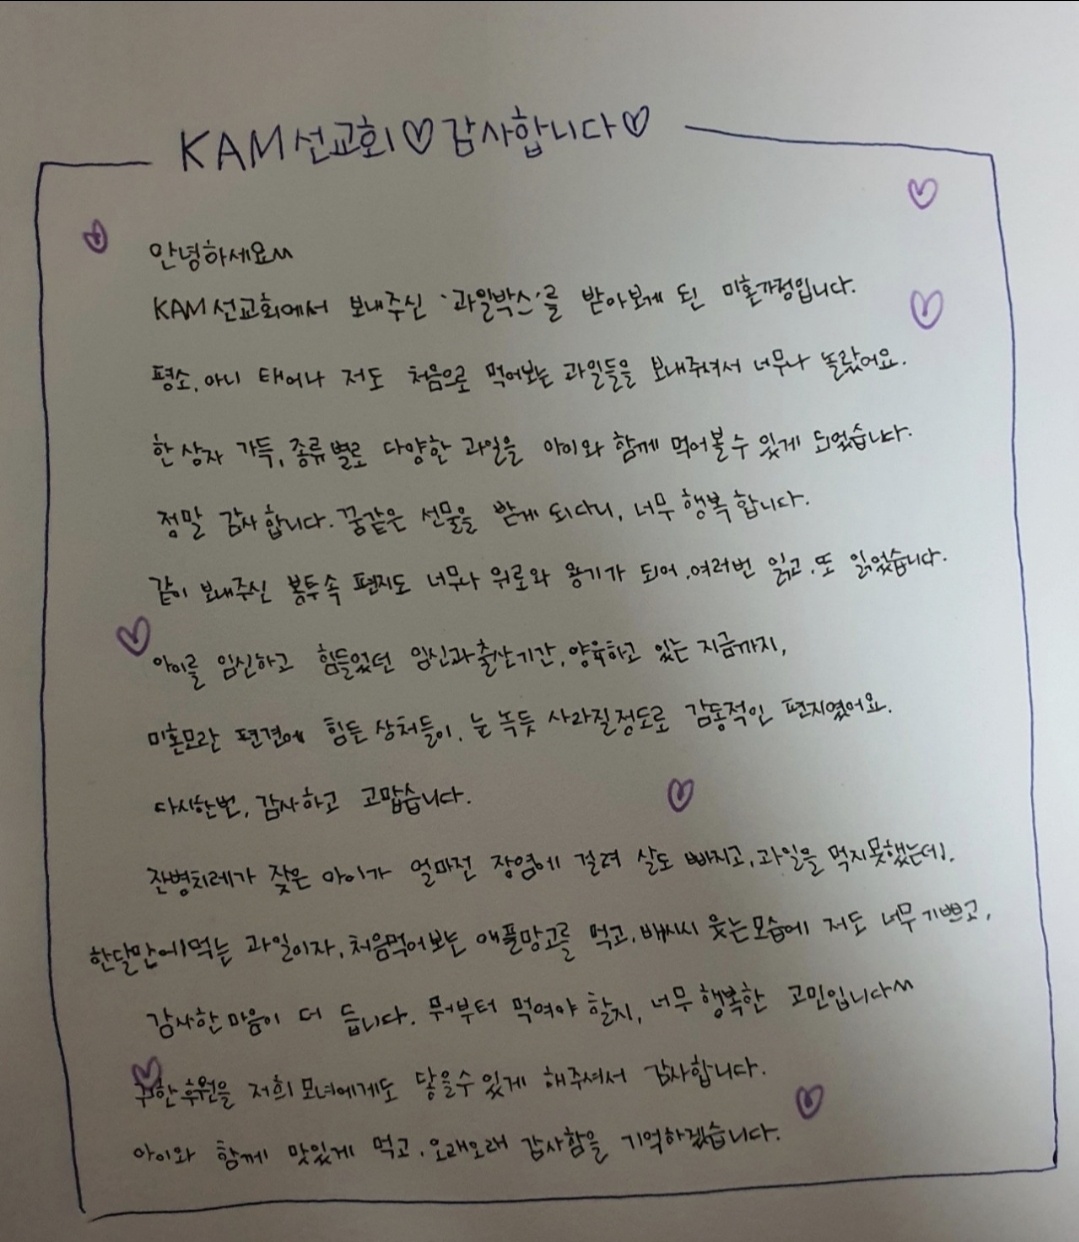 KAM선교회♡감사합니다♡
안녕하세요^^
KAM선교회에서 보내주신 '과일박스'를 받아보게 된 미혼가정입니다.
평소, 아니 태어나 저도 처음으로 먹어보는 과일들을 보내주셔서 너무나 놀랐어요.
한 상자 가득, 종류별로 다양한 과일을 아이와 함께 먹어볼 수 있게 되었습니다.
정말 감사합니다. 꿈같은 선물을 받게 되다니, 너무 행복합니다.
같이 보내주신 봉투 속 편지도 너무나 위로와 용기가 되어, 여러번 읽고, 또 읽었습니다.
아이를 임신하고 힘들었던 임신과 출산기간, 양육하고 있는 지금까지,
미혼모란 편견에 힘든 상처들이, 눈 녹듯 사라질정도로 감동적인 편지였어요.
다시한번, 감사하고 고맙습니다.
잔병치레가 잦은 아이가 얼마전 장염에 걸려 살도 빠지고, 과일을 먹지못했는데,
한달만에 먹는 과일이자, 처음먹어보는 애플망고를 먹고, 배시시 웃는모습에 저도 너무 기쁘고,
감사한 마음이 더 듭니다. 뭐부터 먹여야 할지, 너무 행복한 고민입니다^^
귀한 후원을 저희 모녀에게도 닿을수 있게 해주셔서 감사합니다.
아이와 함께 맛있게 먹고, 오래오래 감사함을 기억하겠습니다.